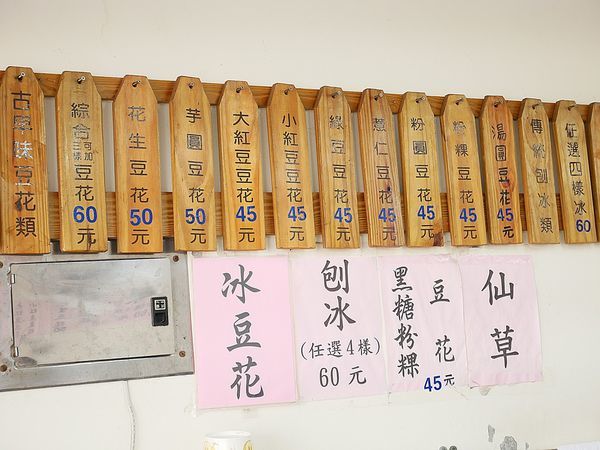 古早味豆花類
綜合豆花60元
可加三樣
花生豆花50元
芋圓豆花50元
大紅豆豆花45元
小紅豆豆花45元
綠豆豆花45元
薏仁豆花45元
粉圓豆花45元
粉粿豆花45元
湯圓豆花45元
傳紛刨冰類
任選四樣冰60
冰豆花
刨冰
(任選4樣)
60元
豆花
黑糖粉粿
45元
仙草